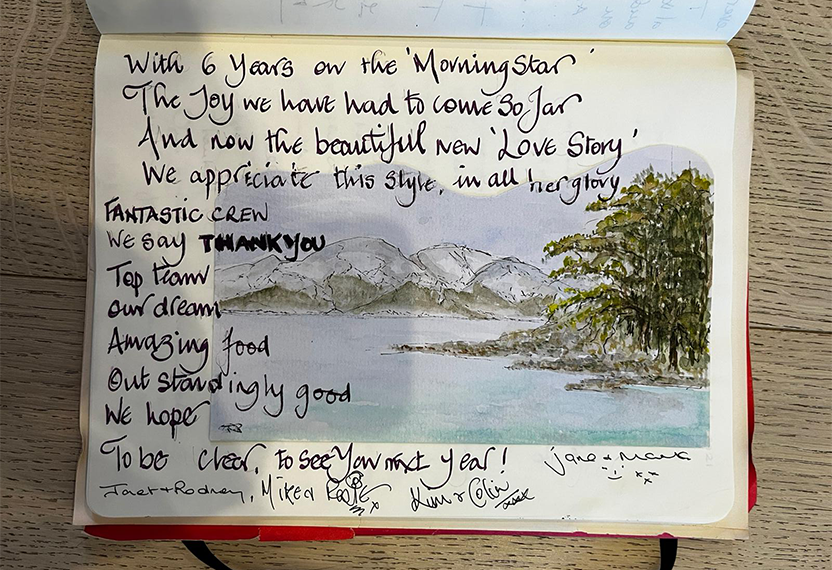 With 6 Years on the 'Morning Star'
The Joy we have had to come so far
And now the beautiful new 'Love Story'
We appreciate this style, in all her glory
FANTASTIC CREW
We say THANK YOU
Top team
our dream
Amazing food
Outstandingly good
We hope
To be clear, to see You next year!
Jane + Mark
Janet + Rodney, Mike
Kim + Colin